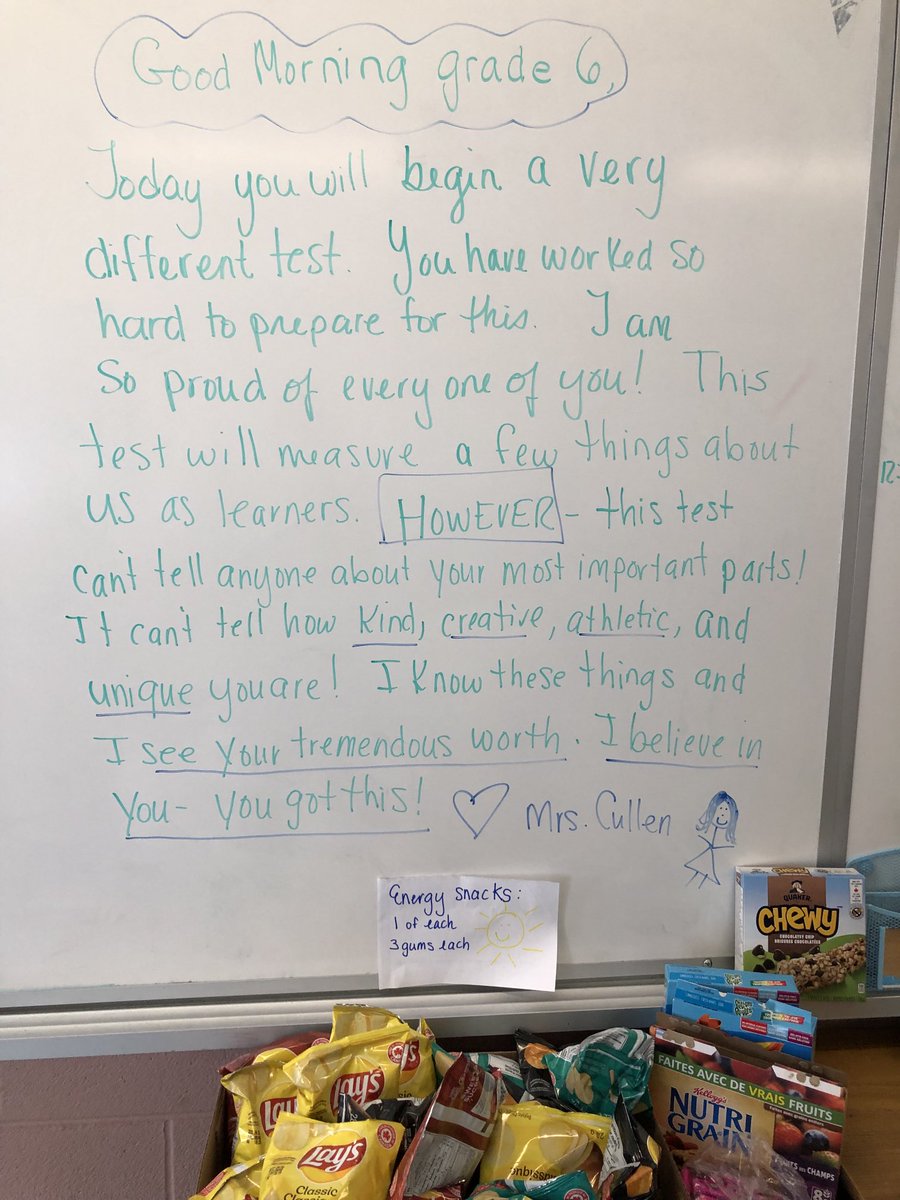 Good Morning grade 6,
Today you will begin a very
different test. You have worked so
hard to prepare for this. I am
so proud of every one of you! This
test will measure a few things about
us as learners. HOWEVER - this test
can't tell anyone about your most important parts!
It can't tell how kind, creative, athletic, and
unique you are! I know these things and
I see your tremendous worth. I believe in
you - you got this! Mrs. Cullen
Energy snacks:
1 of each
3 gums each
QUAKER
CHEWY
CHOCOLATEY CHIP
BRISURES CHOCOLATÉES
FAITES AVEC DE VRAIS FRUITS
Kellogg's
NUTRI
GRAIN
FRUITS des CHAMPS
LAY'S
LAY'S
LAY'S
LAY'S
Classic